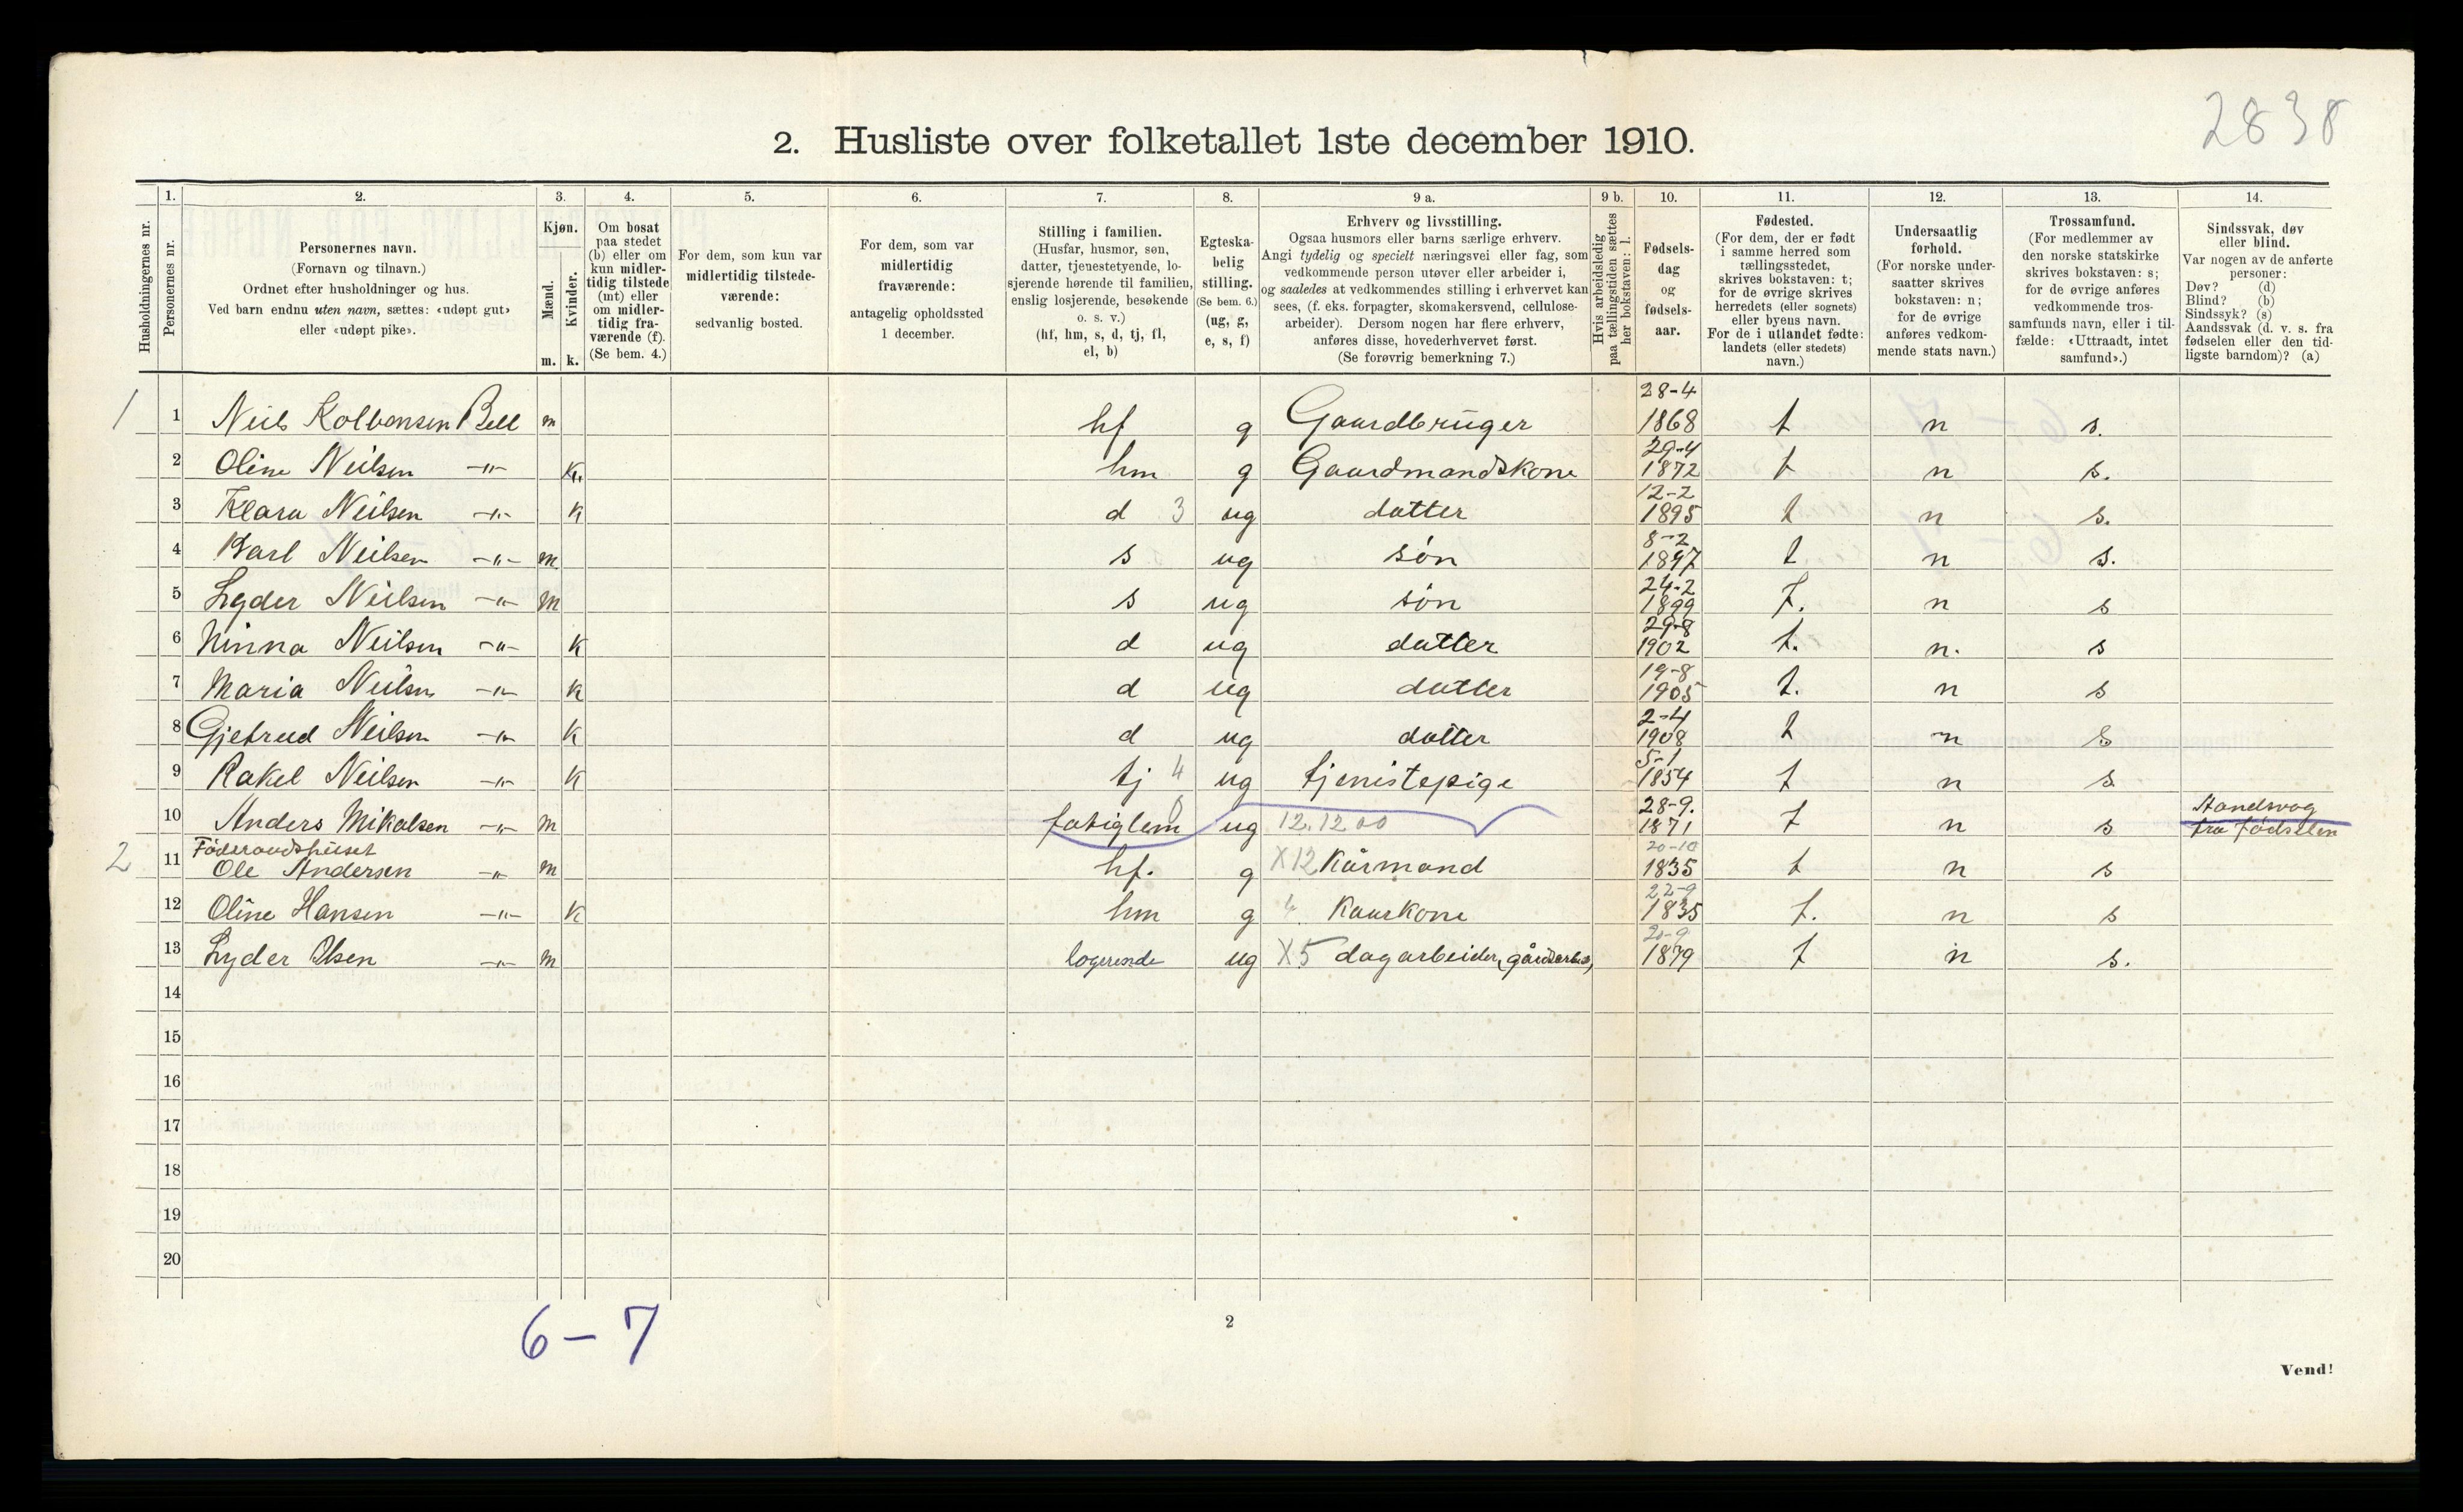 2838
2. Husliste over folketallet 1ste december 1910.
Husholdningernes nr.
1. Personernes nr.
2. Personernes navn.
(Fornavn og tilnavn.)
Ordnet efter husholdninger og hus.
Ved barn endnu uten navn, sættes: «udøpt gut»
eller «udøpt pike».
3. Kjøn.
Mænd. m.
Kvinder. k.
4. Om bosat
paa stedet
(b) eller om
kun midler-
tidig tilstede
(mt) eller
om midler-
tidig fra-
værende (f).
(Se bem. 4.)
5. For dem, som kun var
midlertidig tilstede-
værende:
sedvanlig bosted.
6. For dem, som var
midlertidig
fraværende:
antagelig opholdssted
1 december.
7. Stilling i familien.
(Husfar, husmor, søn,
datter, tjenestetyende, lo-
sjerende hørende til familien,
enslig losjerende, besøkende
o. s. v.)
(hf, hm, s, d, tj, fl,
el, b)
8. Egteska-
belig
stilling.
(Se bem. 6.)
(ug, g,
e, s, f)
9 a. Erhverv og livsstilling.
Ogsaa husmors eller barns særlige erhverv.
Angi tydelig og specielt næringsvei eller fag, som
vedkommende person utøver eller arbeider i,
og saaledes at vedkommendes stilling i erhvervet kan
sees, (f. eks. forpagter, skomakersvend, cellulose-
arbeider). Dersom nogen har flere erhverv,
anføres disse, hovederhvervet først.
(Se forøvrig bemerkning 7.)
9 b. Hvis arbeidsledig
paa tællingstiden sættes
her bokstaven: l.
10. Fødsels-
dag
og
fødsels-
aar.
11. Fødested.
(For dem, der er født
i samme herred som
tællingsstedet,
skrives bokstaven: t;
for de øvrige skrives
herredets (eller sognets)
eller byens navn.
For de i utlandet fødte:
landets (eller stedets)
navn.)
12. Undersaatlig
forhold.
(For norske under-
saatter skrives
bokstaven: n;
for de øvrige
anføres vedkom-
mende stats navn.)
13. Trossamfund.
(For medlemmer av
den norske statskirke
skrives bokstaven: s;
for de øvrige anføres
vedkommende tros-
samfunds navn, eller i til-
fælde: «Uttraadt, intet
samfund».)
14. Sindssvak, døv
eller blind.
Var nogen av de anførte
personer:
Døv? (d)
Blind? (b)
Sindssyk? (s)
Aandssvak (d. v. s. fra
fødselen eller den tid-
ligste barndom)? (a)
1 1 Neils Kolbansen Bell m hf g Gaardbruger 28-4 1868 t n s.
2 Oline Neilsen -"- k. hm g Gaardmandskone 29-4 1872 t n s.
3 Klara Neilsen -"- k d 3 ug datter 12-2 1895 t n s.
4 Karl Neilsen -"- m s ug søn 8-2 1897 t n s.
5 Lyder Neilsen -"- m s ug søn 24-2 1899 t. n s
6 Ninna Neilsen -"- k d ug datter 29-8 1902 t. n. s
7 Maria Neilsen -"- k d ug datter 19-8 1905 t. n s
8 Gjetrud Neilsen -"- k d ug datter 2-4 1908 t n s
9 Rakel Neilsen -"- k tj 4 ug tjenistepige 5-1 1854 t n s
10 Anders Mikalsen -"- m fatiglem 0 ug 12.12 00 28-9. 1871 t n s Aandsvag
fra fødselen
Føderaadshuset
2 11 Ole Andersen -"- m hf. g X12 Kårmand 20-10 1835 t n s
12 Oline Hansen -"- k hm g 4 Kaarkone 22-9 1835 t. n s
13 Lyder Olsen -"- m logerende ug X5 dagarbeider, 20-9 1879 t n s.
14
15
16
17
18
19
20
6-7
2
Vend!